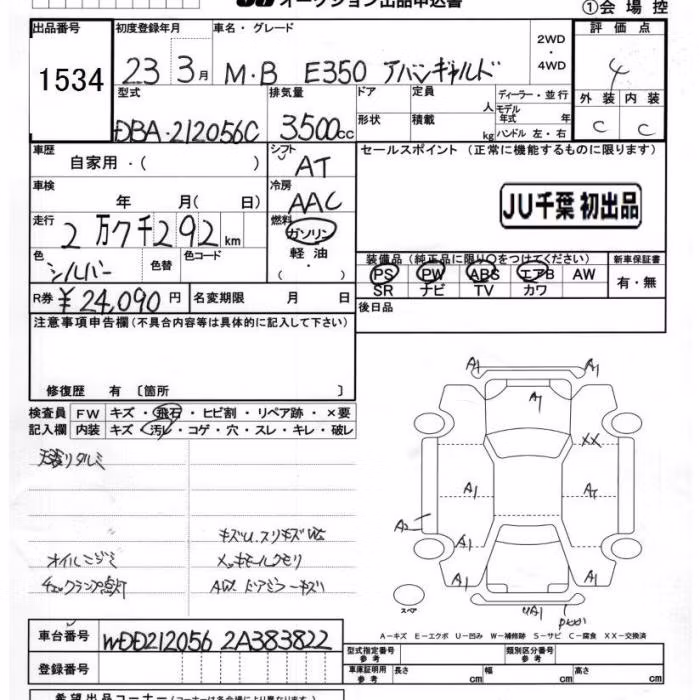 オークション出品申込書
①会場控
出品番号 初度登録年月 車名・グレード 2WD・4WD 評価点
1534 23 3月 M・B E350 アバンギャルド 4
型式 排気量 ドア 定員 人 ディーラー・並行 外装 内装
DBA-212056C 3500cc 形状 積載 kg モデル年式 年 ハンドル 左・右 C C
車歴 シフト セールスポイント (正常に機能するものに限ります)
自家用・( ) AT
車検 冷房
年 月( 日) AAC JU千葉 初出品
走行 燃料
2万7千292km ガソリン
色 色替 色コード 軽油 装備品 (純正品に限り○をつけてください) 新車保証書
シルバー ・( ) PS PW ABS エアB AW 有・無
SR ナビ TV カワ
R券 ¥24,090円 名変期限 月 日 後日品
注意事項申告欄(不具合内容等は具体的に記入して下さい)
修復歴 有 〔箇所 〕
検査員 FW キズ・飛石・ヒビ割・リペア跡・×要
記入欄 内装 キズ・汚レ・コゲ・穴・スレ・キレ・破レ
天張リタルミ
オイルニジミ メッキモールクモリ
チェックランプ点灯
A1 A1
A1
XX
A1 A1
A2
A1 A1
A1 A1
UA1
スペア
A-キズ E-エクボ U-凹み W-補修跡 S-サビ C-腐食 XX-交換済
車台番号 WDD212056 2A383822
型式指定番号 参考 類別区分番号 参考
登録番号
車庫証明用 参考 長さ cm 幅 cm 高さ cm
希望出品コーナー